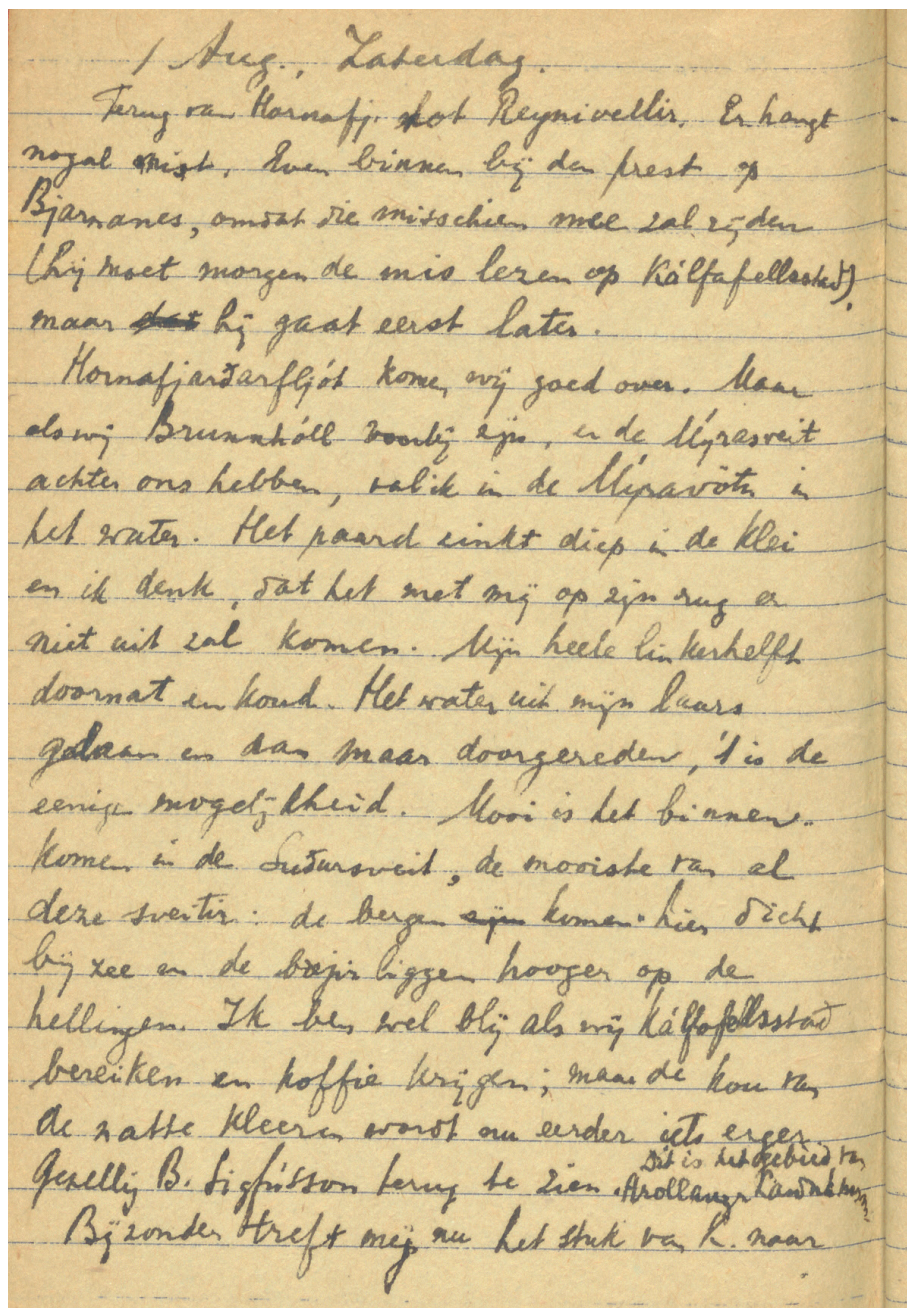 1 Aug., Zaterdag.
Terug van Hornafj. tot Reynivellir. Er hangt
nogal mist. Even binnen bij den prest op
Bjarnanes, omdat die misschien mee zal rijden
(hij moet morgen de mis lezen op Kálfafellsstað),
maar dat hij gaat eerst later.
Hornafjarðarfljót komen wij goed over. Maar
als wij Brunnhóll voorbij zijn, en de Mýrasveit
achter ons hebben, val ik in de Mýravötn in
het water. Het paard zinkt diep in de klei
en ik denk, dat het met mij op zijn rug er
niet uit zal komen. Mijn heele linkerhelft
doornat en koud. Het water uit mijn laars
gedaan en dan maar doorgereden, 't is de
eenige mogelijkheid. Mooi is het binnen-
komen in de Suðursveit, de mooiste van al
deze sveitir: de bergen zijn komen hier dicht
bij zee en de bæjir liggen hooger op de
hellingen. Ik ben wel blij als wij Kálfafellsstað
bereiken en koffie krijgen; maar de kou van
de natte kleeren wordt nu eerder iets erger.
Gezellig B. Sigfússon terug te zien. Dit is het gebied van
Hrollaugr Landnám
Bijzonder treft mij nu het stuk van K. naar